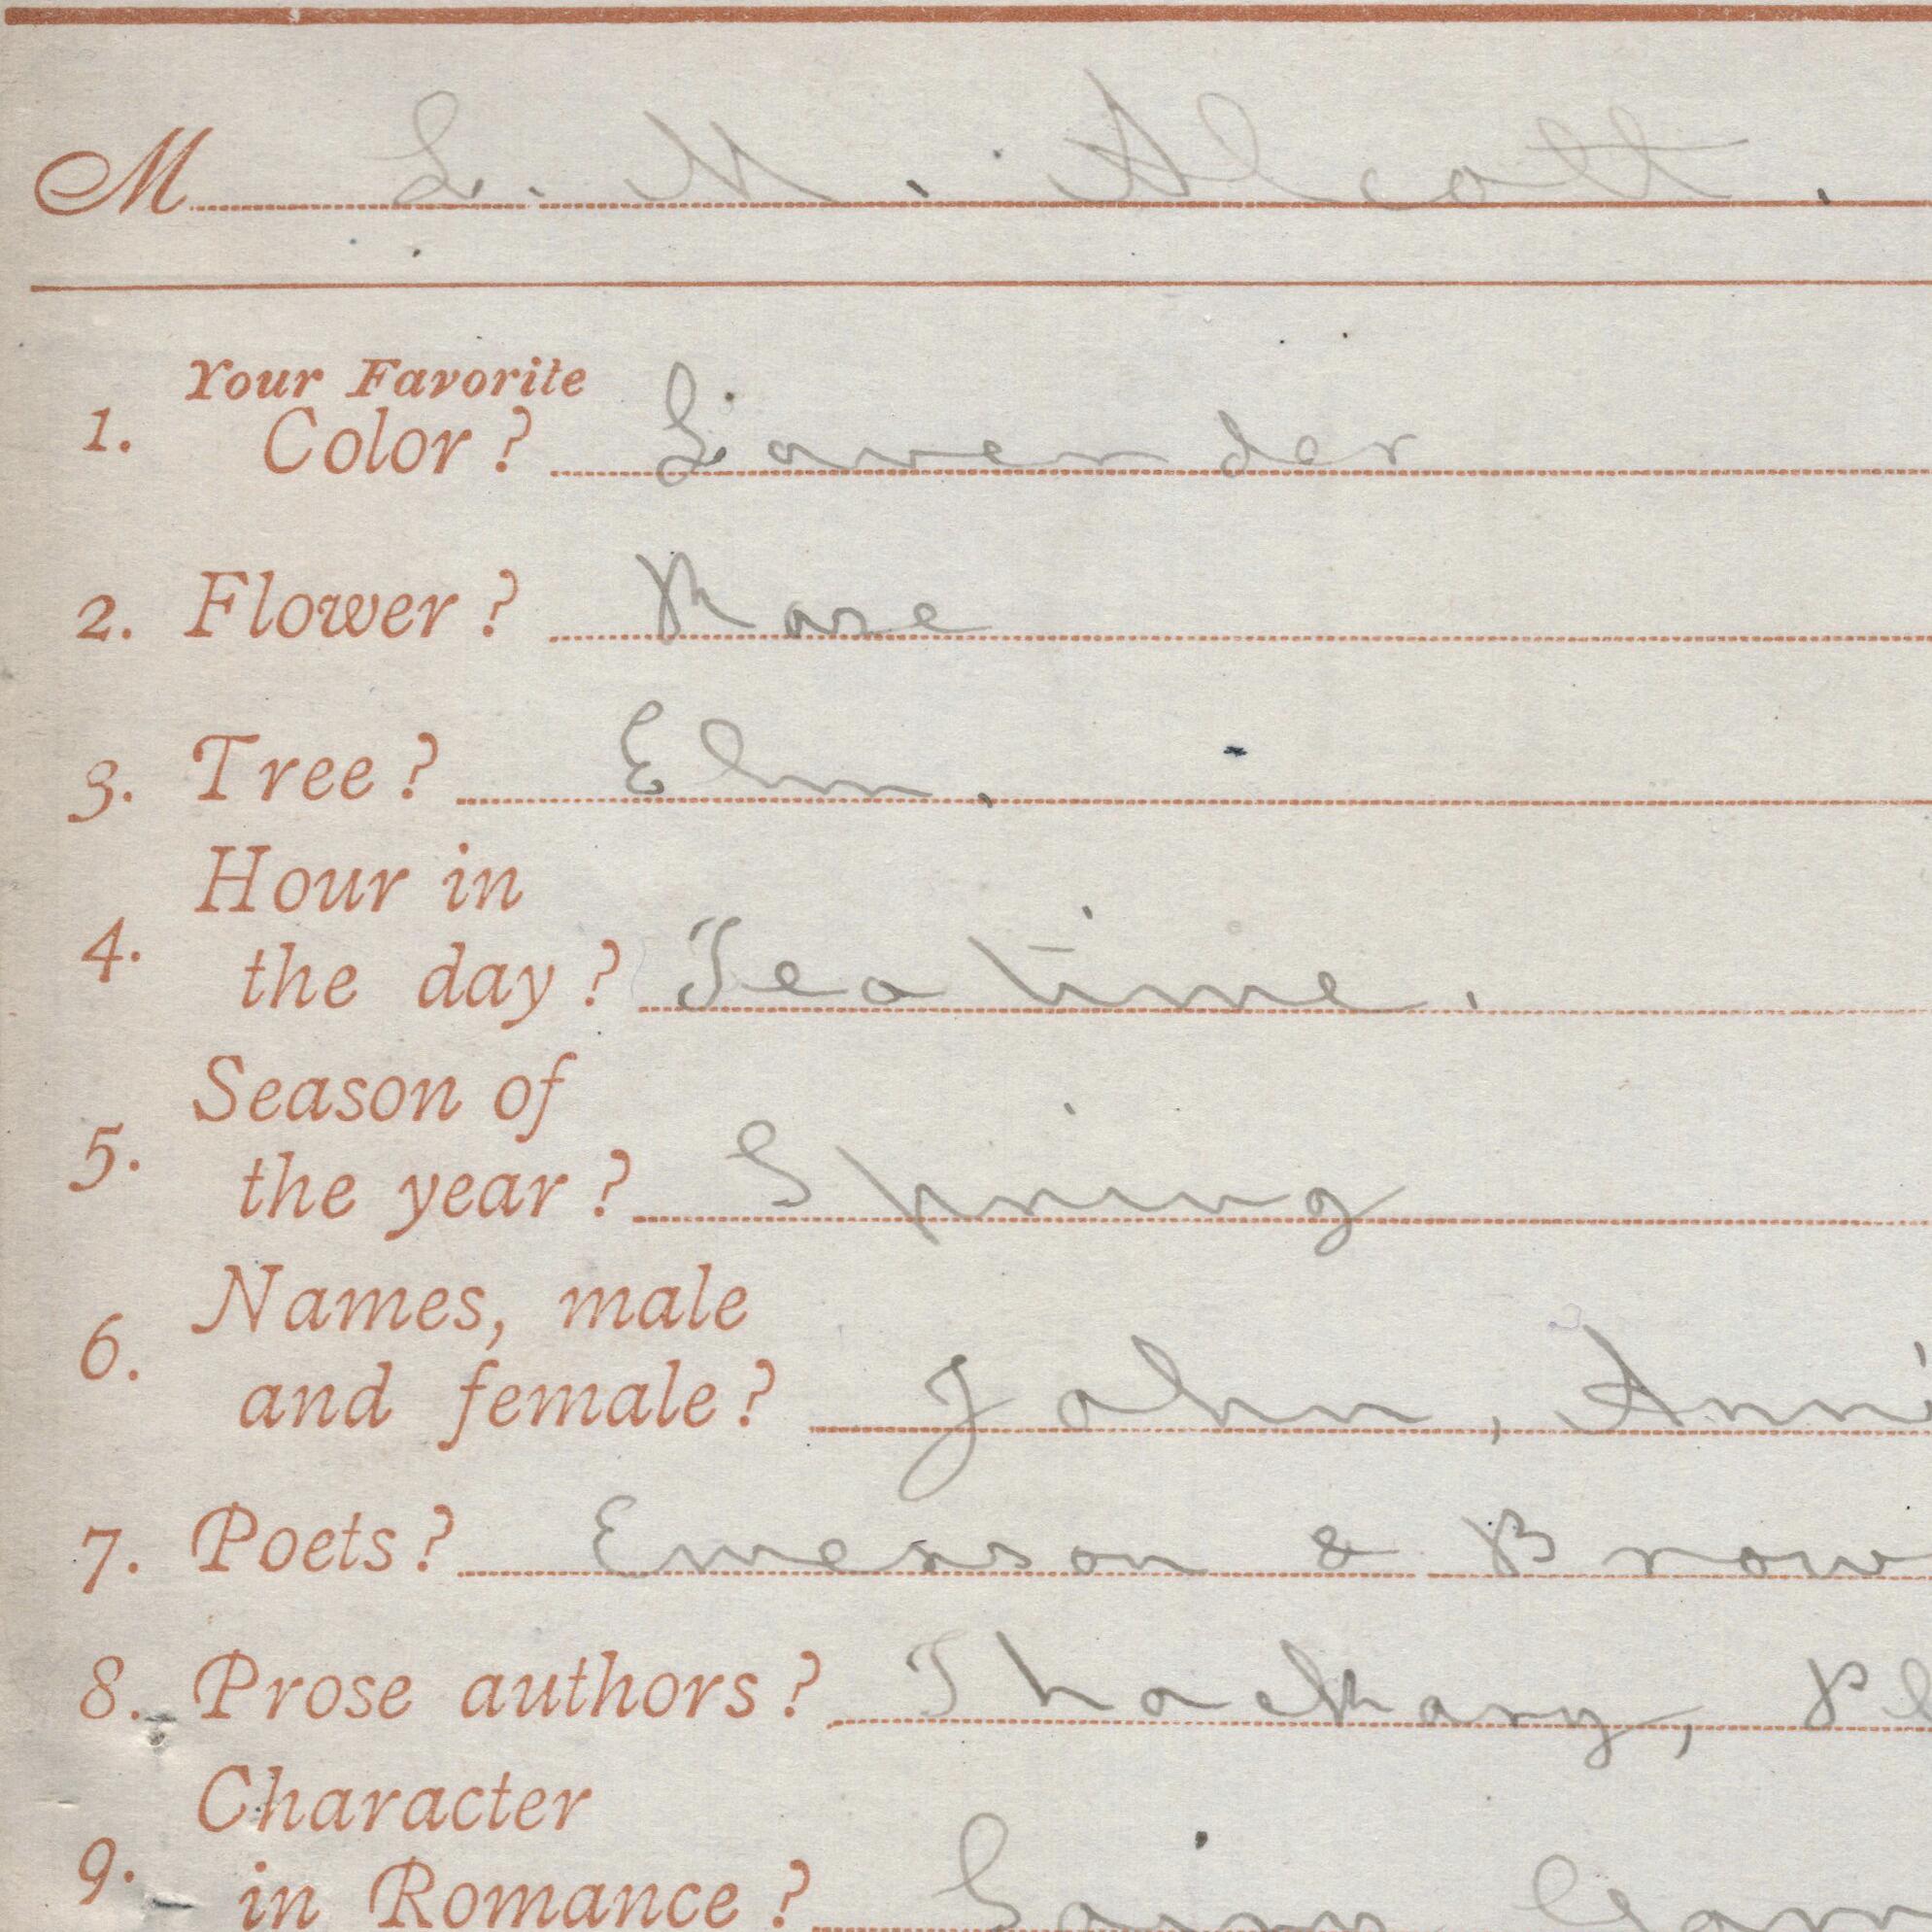 M L. M. Alcott.
Your Favorite
1. Color? Lavender
2. Flower? Rose
3. Tree? Elm.
Hour in
4. the day? Tea time.
Season of
5. the year? Spring
Names, male
6. and female? John, Anni
7. Poets? Emerson & Brow
8. Prose authors? Thackary, Pl
Character
9. in Romance?